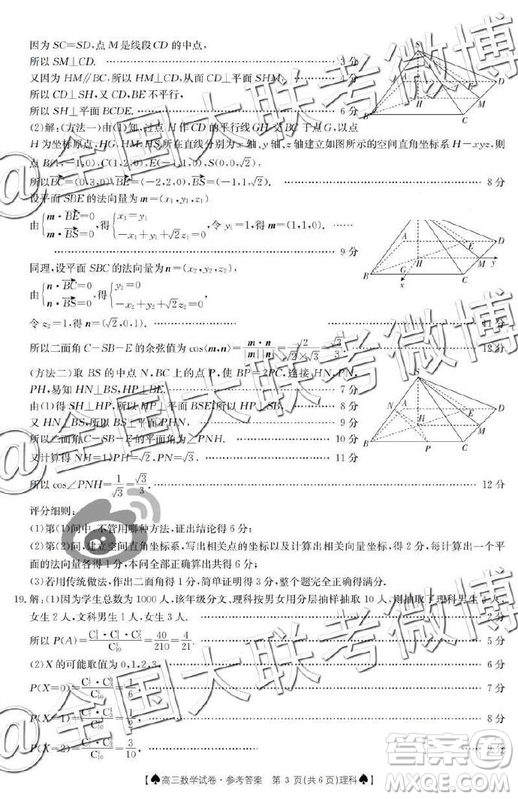 因为SC=SD,点M是线段CD的中点,
所以SM⊥CD.
又因为HM∥BC,所以HM⊥CD,从而CD⊥平面SHM, 4分
所以CD⊥SH,又CD,BE不平行,
所以SH⊥平面BCDE. 6分
(2)解:(方法一)由(1)知,过点H作CD的平行线GH交BC于点G,以点
H为坐标原点,HG,HM,HS所在直线分别为x轴,y轴,z轴建立如图所示的空间直角坐标系H-xyz,则
点B(1,-1,0),C(1,2,0),E(-1,1,0),S(0,0,√2),
所以BC=(0,3,0),BE=(-2,2,0),BS=(-1,1,√2). 8分
设平面SBE的法向量为m=(x₁,y₁,z₁)
由{m·BE=0 m·BS=0,得{x₁=y₁ -x₁+y₁+√2z₁=0,令y₁=1,得m=(1,1,0).
9分
同理,设平面SBC的法向量为n=(x₂,y₂,z₂),
由{n·BC=0 n·BS=0,得{y₂=0 -x₂+y₂+√2z₂=0,
令z₂=1,得n=(√2,0,1).
所以二面角C-SB-E的余弦值为cos⟨m,n⟩=m·n/|m||n|=√2/(√2×√3)=√3/3. 12分
(方法二)取SB的中点N,BC上的点P,使BP=2PC,连接HN,PN,
PH,易知HN⊥BS,HP⊥BE. 7分
由(1)得SH⊥HP,所以HP⊥平面BSE,所以HP⊥SB. 8分
又HN⊥BS,所以BS⊥平面PHN, 9分
所以二面角C-SB-E的平面角为∠PNH. 10分
又计算得NH=1,PH=√2,PN=√3. 11分
所以cos∠PNH=1/√3=√3/3. 12分
评分细则:
(1)第(1)问中,不管用哪种方法,证出结论得6分;
(2)第(2)问,建立空间直角坐标系,求出相关坐标以及计算出相关向量坐标,得2分,每计算一个
平面的法向量正确得1分,直至最后计算出正确结果得满分;
(3)若用传统做法,作出二面角的平面角并证明得4分,计算出正确结果共得6分.
19.解:(1)因为学生总数为1000人,该年级分文、理科按男女用分层抽样抽取10人,则抽取了理科男生4人,
女生2人,文科男生1人,女生3人. 2分
所以P(A)=40/210=4/21. 5分
(2)X的可能取值为0,1,2,3, 6分
P(X=0)=1/6, 7分
P(X=1)=1/2, 8分
P(X=2)
♠高三数学试卷·参考答案 第3页(共6页)理科♠
@全国大联考微博
@全国大联考微博
@全国大联考微博